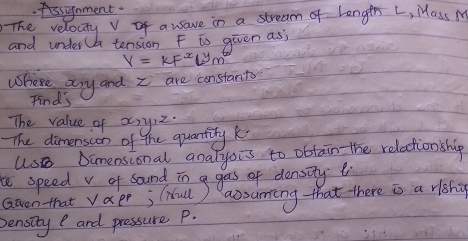 Assignment
The velocity V of a wave in a stream of Length L, Mass M
and under a tension F is given as;
V = KFˣLʸm
Where x,y and z are constants.
Find;
The value of x,y,z.
The dimension of the quantity k.
Use Dimensional analysis to obtain the relationship
speed v of sound in a gas of density ρ.
Given that V α ρP ; assuming that there is a r/ship
Density ρ and pressure P.